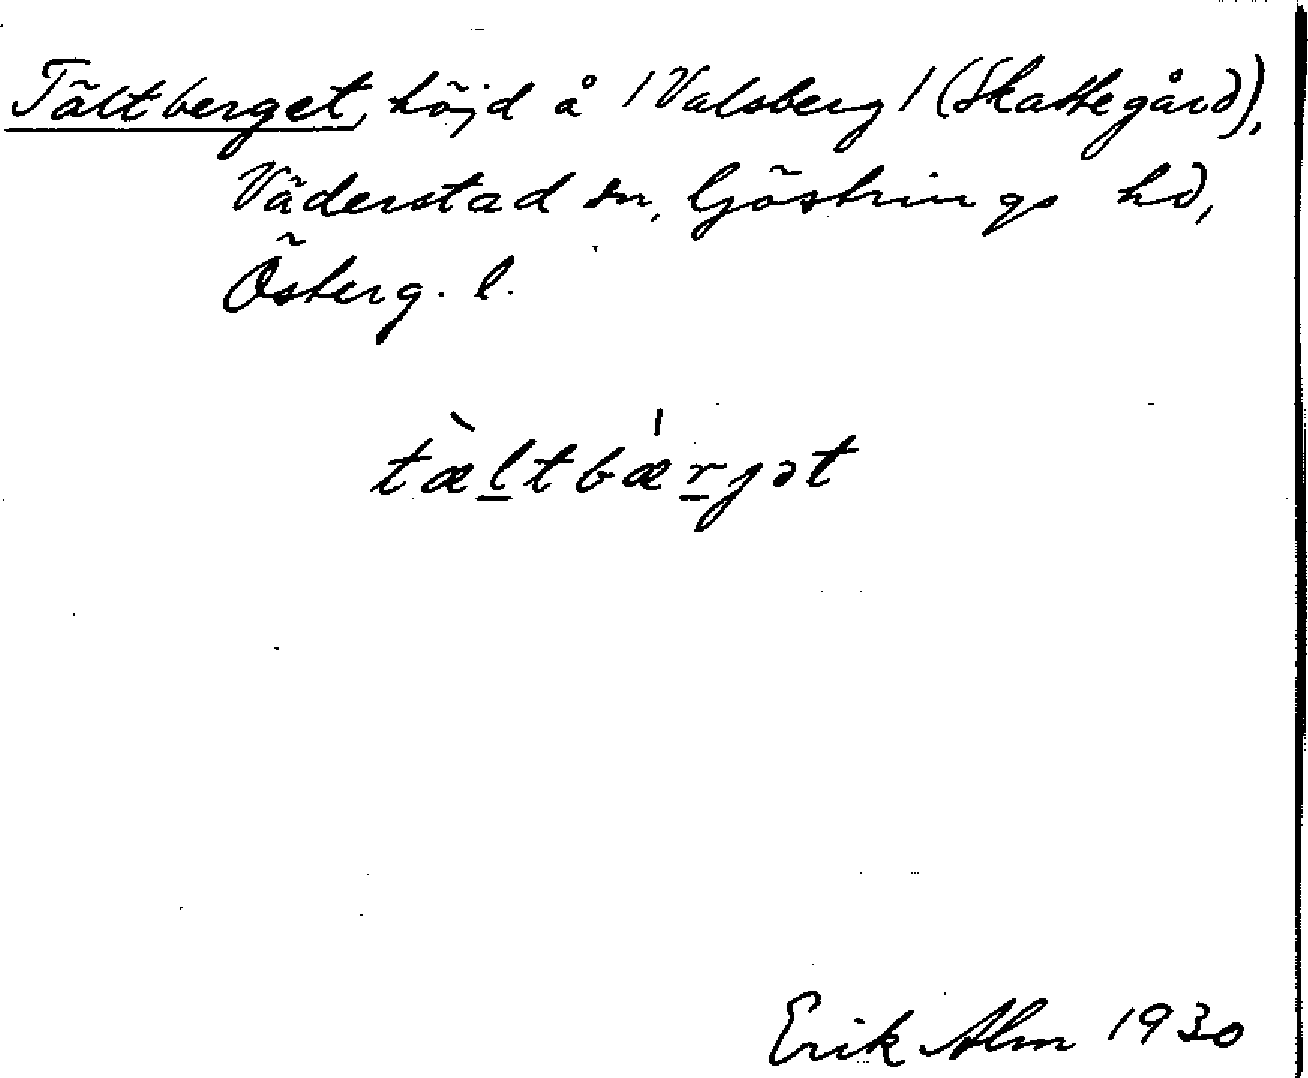 Tältberget, höjd å /Valsberg/ (Skattegård),
Väderstad sn, Göstrings hd,
Österg. l.
tæ̀ltbæ̍rjət
Erik Alm 1930